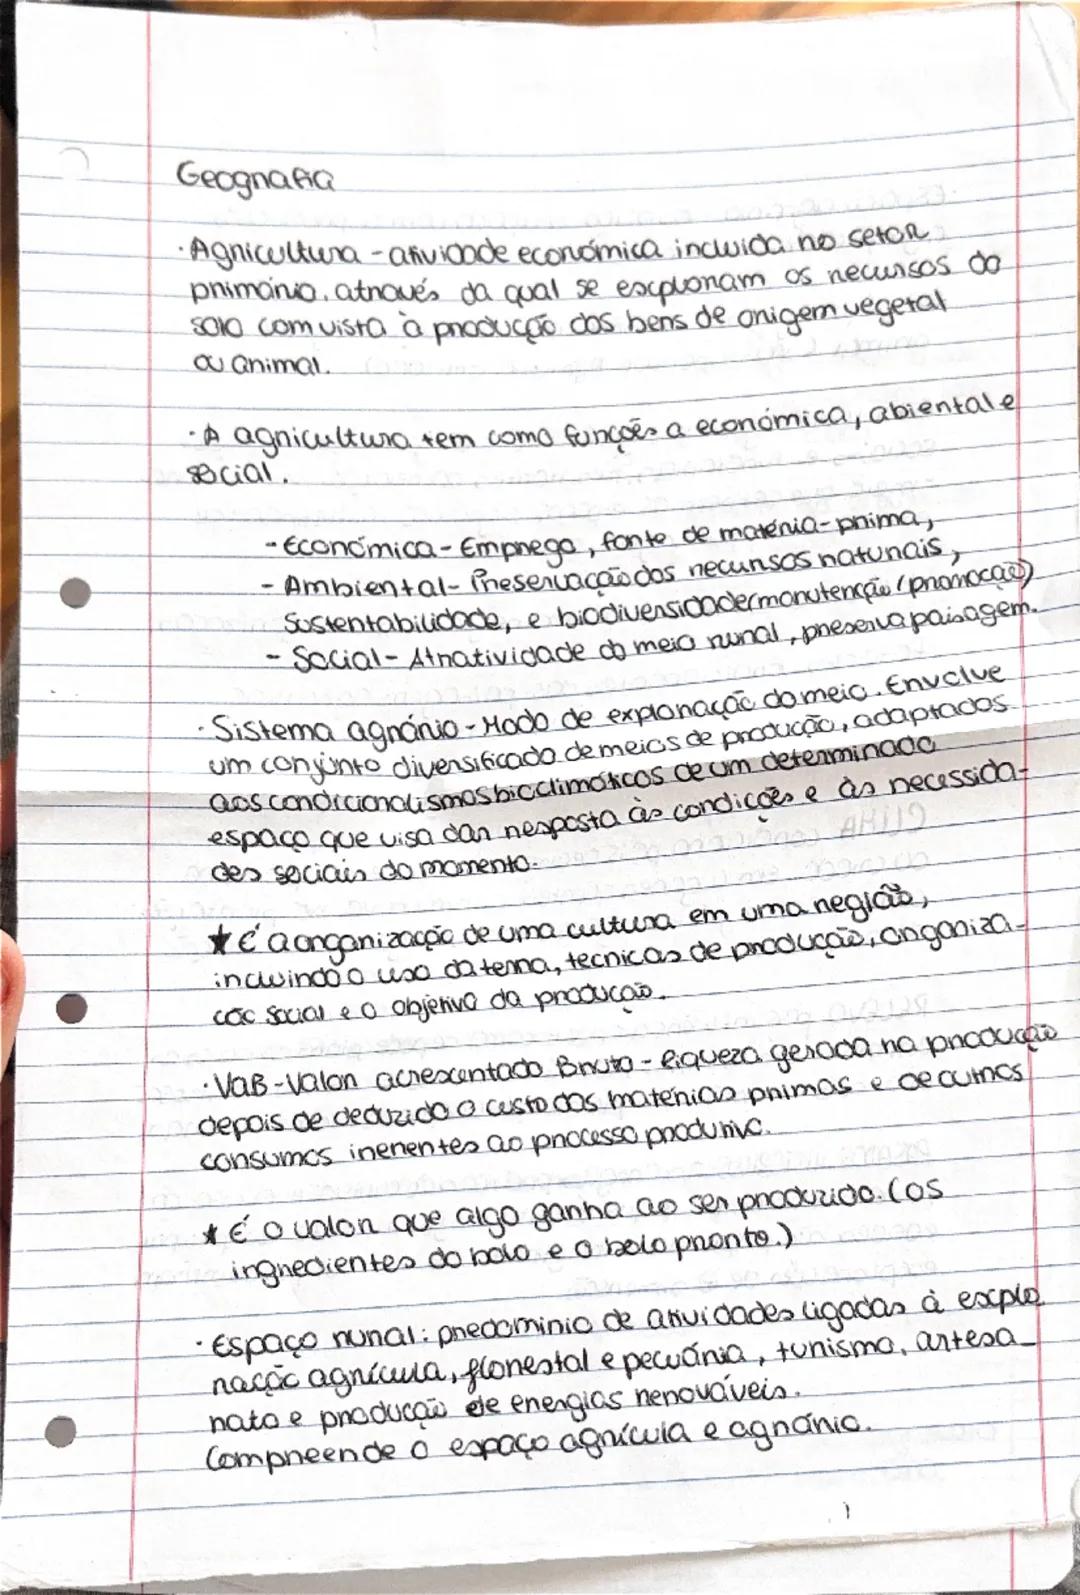 Geografia
· Agricultura - atividade económica incluida no setor
primário, através da qual se exploram os recursos do
solo com vista à producção dos bens de origem vegetal
ou animal.
· A agricultura tem como funções a económica, abiental e
social.
- Económica - Emprego, fonte de matéria-prima,
- Ambiental - Preservação dos recursos naturais,
Sustentabilidade, e biodiversidade (manutenção (promoção)
- Social - Atratividade do meio rural, preserva paisagem.
· Sistema agrário - Modo de exploração do meio. Envolve
um conjunto diversificado de meios de producção, adaptados
aos condicionalismos bioclimáticos de um determinado
espaço que visa dar resposta às condições e às necessida-
des sociais do momento.
★ É a organização de uma cultura em uma região,
incluindo o uso da terra, tecnicas de producção, organiza-
ção social e o objetivo da produção.
· VAB - Valor acrescentado Bruto - Riqueza gerada na producção
depois de deduzido o custo das matérias primas e de outros
consumos inerentes ao processo produtivo.
★ É o valor que algo ganha ao ser produzido. (os
ingredientes do bolo e o bolo pronto.)
· Espaço rural: predominio de atividades ligadas à explo
ração agrícula, florestal e pecuária, turismo, artesa_
nato e producção de energias renováveis.
Compreende o espaço agrícula e agrário.
1